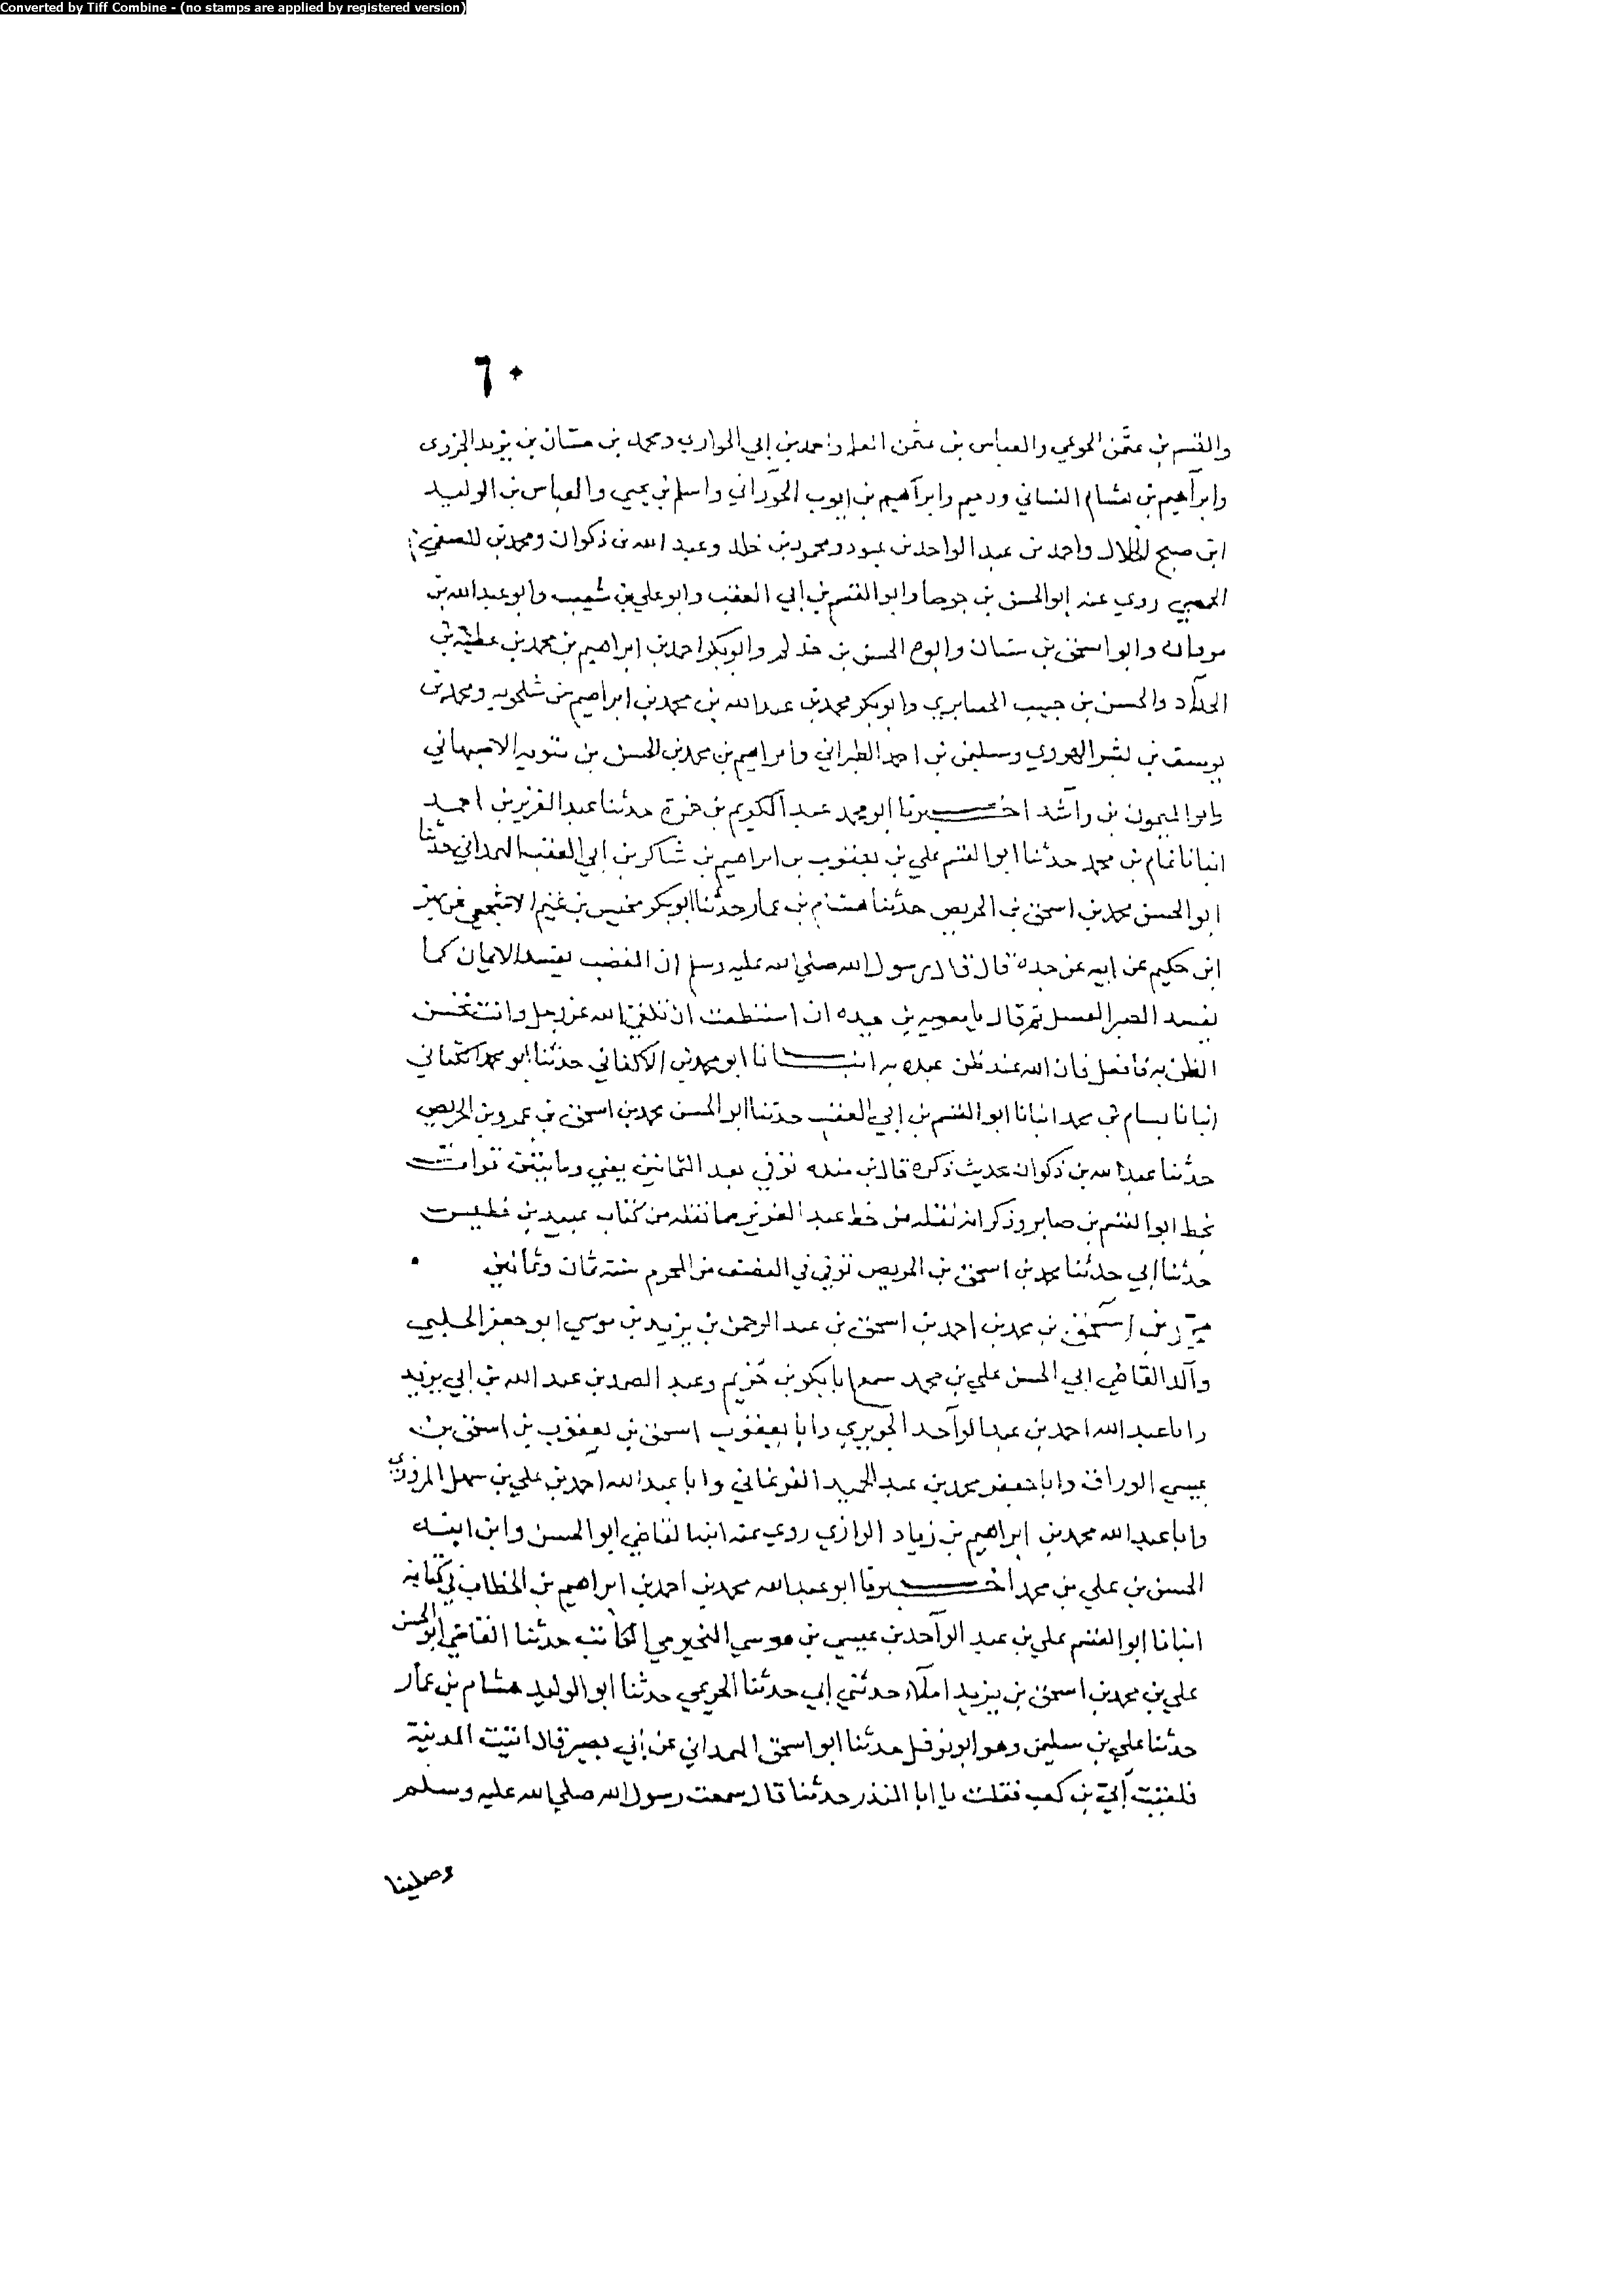 Converted by Tiff Combine - (no stamps are applied by registered version)
٦٠
والقسم بن عثمن الجوعي والعباس بن عثمن المعلم واحمد بن ابي الحواري ومحمد بن حسان بن يزيد الجزري
وابراهيم بن هشام الغساني ودحيم وابراهيم بن ايوب الحوراني واسلم بن يحيي والعباس بن الوليد
ابن صبح الخلال واحمد بن عبد الواحد بن عبود ومحمود بن خلد وعبد الله بن ذكوان ومحمد بن المصفي
الحمصي روي عنه ابو الحسن بن جوصا وابو القسم بن ابي العقب وابو علي بن شعيب وابو عبد الله بن
مروان وابو اسحق بن سنان وابو الحسن بن حذلم وابو بكر احمد بن ابراهيم بن محمد بن عطية بن
الحداد والحسن بن حبيب الحصايري وابو بكر محمد بن عبد الله بن محمد بن ابراهيم بن شلحويه ومحمد بن
يوسف بن بشر الهروي وسليمن بن احمد الطبراني وابراهيم بن محمد بن الحسن بن متويه الاصبهاني
وابو الميمون بن راشد اخبرنا ابو محمد عبد الكريم بن حمزة حدثنا عبد العزيز بن احمد
انبانا تمام بن محمد حدثنا ابو القسم علي بن يعقوب بن ابراهيم بن شاكر بن ابي العقب الهمداني حدثنا
ابو الحسن محمد بن اسحق بن الحريص حدثنا هشام بن عمار حدثنا ابو بكر مخيس بن غنيم الاشجعي عن بهز
ابن حكيم عن ابيه عن جده قال قال رسول الله صلي الله عليه وسلم ان الغضب يفسد الايمان كما
يفسد الصبر العسل ثم قال يا معوية بن حيده ان استطعت ان تلقي الله عز وجل وانت تحسن
الظن به فافعل فان الله عند ظن عبده به انبانا ابو محمد بن الاكفاني حدثنا ابو محمد الكتاني
انبانا تمام بن محمد انبانا ابو القسم بن ابي العقب حدثنا ابو الحسن محمد بن اسحق بن عمرو بن الحريص
حدثنا عبد الله بن ذكوان بحديث ذكره قال بن منده توفي بعد الثمانين يعني وماتين قرات
بخط ابو القسم بن صابر وذكر انه نقله من خط عبد العزيز مما نقله من كتاب عبيد بن فطيس
حدثنا ابي حدثنا محمد بن اسحق بن الحريص توفي في النصف من المحرم سنة ثمان وثمانين
محمد بن اسحق بن محمد بن احمد بن اسحق بن عبد الرحمن بن يزيد بن موسي ابو جعفر الحلبي
والد القاضي ابي الحسن علي بن محمد سمع ابا بكر بن خريم وعبد الصمد بن عبد الله بن ابي يزيد
وابا عبد الله احمد بن عبد الواحد الجوبري وابا يعقوب اسحق بن يعقوب بن اسحق بن
عيسي الوراق وابا جعفر محمد بن عبد الحميد الفرغاني وابا عبد الله احمد بن علي بن سهل المروزي
وابا عبد الله محمد بن ابراهيم بن زياد الرازي روي عنه ابنه القاضي ابو الحسن وابن ابنه
الحسن بن علي بن محمد اخبرنا ابو عبد الله محمد بن احمد بن ابراهيم بن الخطاب في كتابه
انبانا ابو القسم علي بن عبد الواحد بن عيسي بن موسي النجيرمي الكاتب حدثنا القاضي ابو الحسن
علي بن محمد بن اسحق بن يزيد املاء حدثني ابي حدثنا الخريمي حدثنا ابو الوليد هشام بن عمار
حدثنا علي بن سليمن وهو ابو نوفل حدثنا ابو اسحق الهمداني عن ابي بصير قال اتيت المدينة
فلقيت ابي بن كعب فقلت يا ابا المنذر حدثنا قال سمعت رسول الله صلي الله عليه وسلم
وصلينا